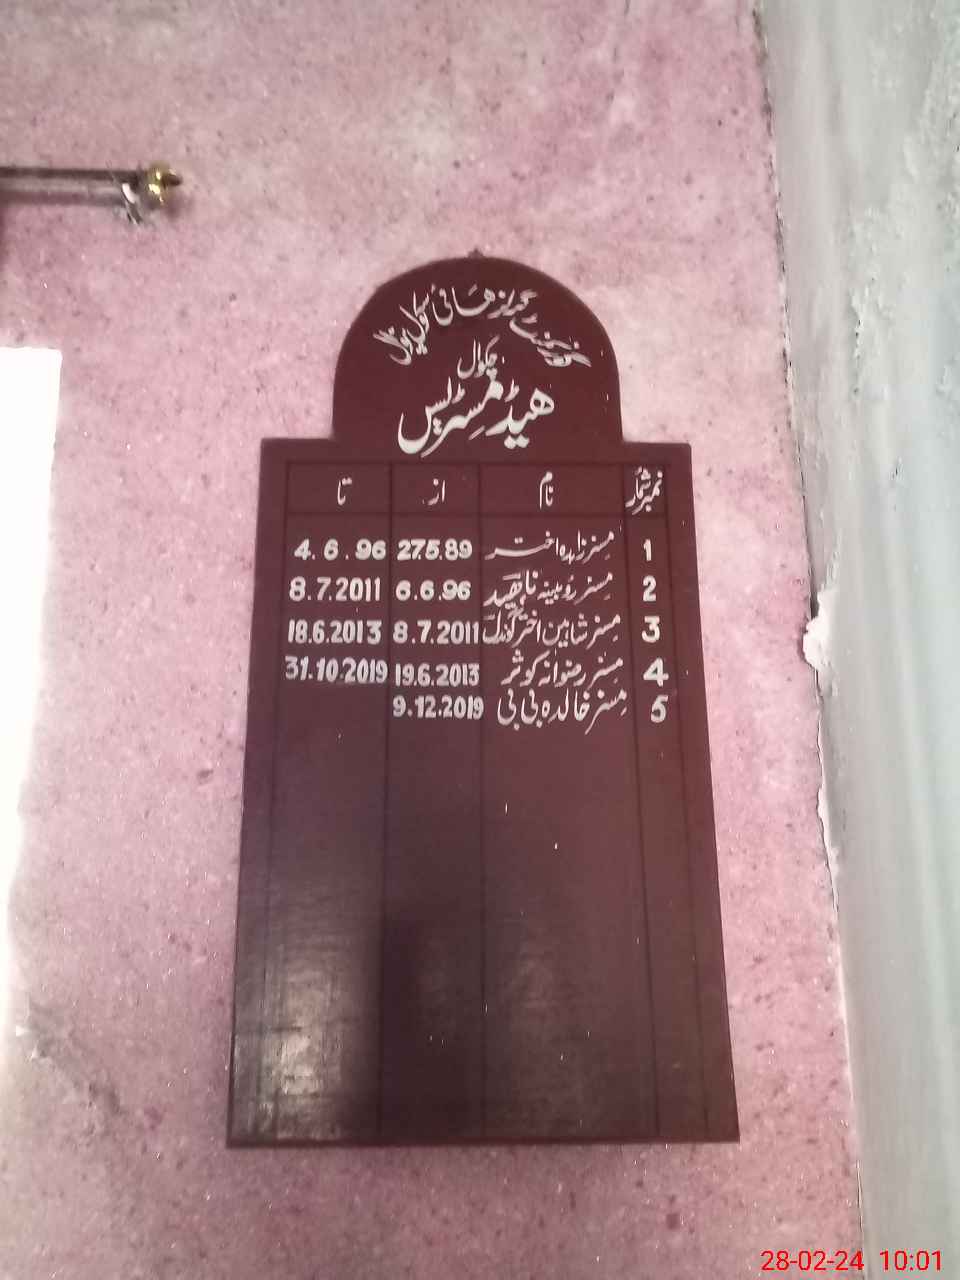 گورنمنٹ گرلز ہائی سکول
چکوال
ہیڈمسٹریس
نمبرشمار نام از تا
1 مسنر زاہدہ اختر 27.5.89 4.6.96
2 مسنر روبینہ ناہید 6.6.96 8.7.2011
3 مسنر شاہین اختر گوندل 8.7.2011 18.6.2013
4 مسنر رضوانہ کوثر 19.6.2013 31.10.2019
5 مسنر خالدہ بی بی 9.12.2019
28-02-24 10:01